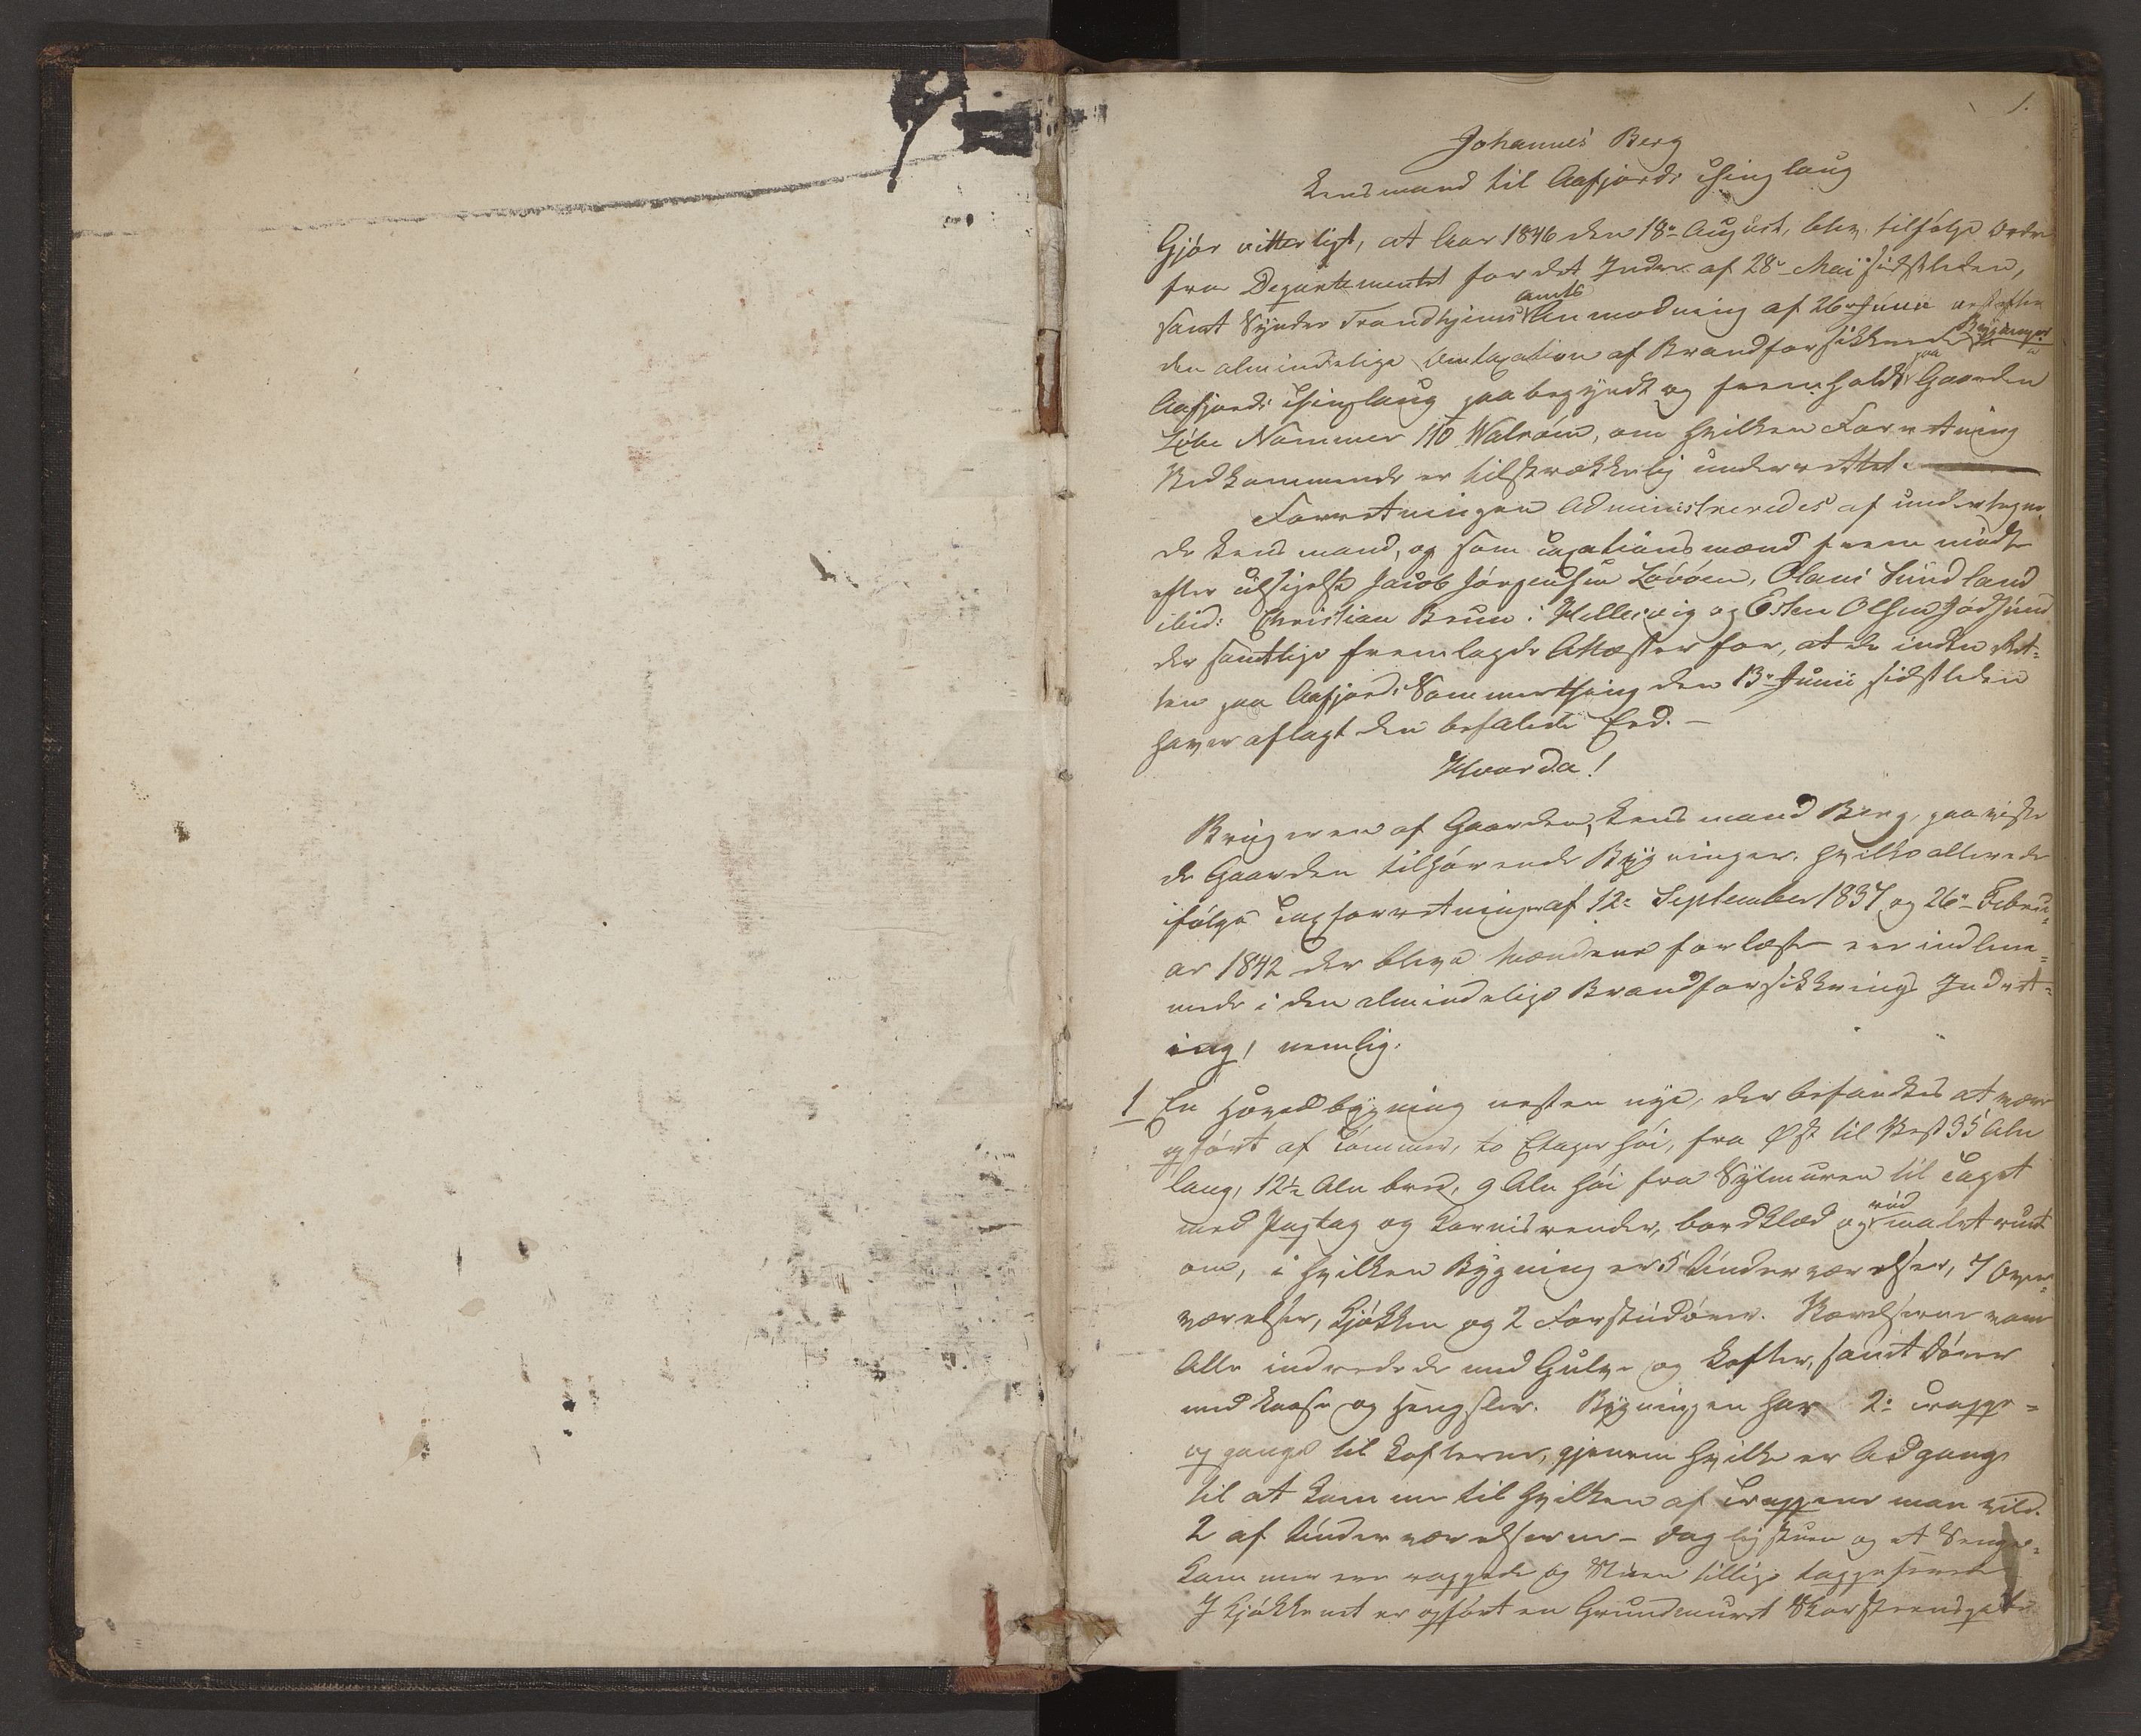 1.
Johannes Berg
Lensmand til Aafjords Thinglaug
Gjør vitterligt, at Aar 1846 den 18de August, blev tilfølge Ordre
fra Departementet for det Indre af 28de Mai sidstleden,
samt Syndre Trondhjems Amts Anmodning af 26de Junii næstefter
den almindelige Omtaxation af Brandforsikkrede Bygninger i
Aafjords Thinglaug paabegyndt og fremholdt paa Gaarden
Løbe Nummer 110 Walrøm, om hvilken Forretning
Vedkommende er tilstrækkelig underrettet.
Forretningen Administreredes af undertegne-
de Lensmand, og som Taxationsmænd frem mødte
efter tilsigelse Jacob Jørgensen Løvøen, Olaus Sundland
ibid: Christian Brun i Hellesvig og Esten Olsen Jødsund
der samtlige fremlagde Attester for, at de inden Ret-
ten paa Aafjords Sommerthing den 13de Junii sidstleden
haver aflagt den befalede Eed. –
Hvorda!
Brugeren af Gaarden, Lensmand Berg, paaviste
de Gaarden tilhørende Bygninger, hvilke allerede
ifølge Taxforretninger af 12te September 1837 og 26de Febru-
ar 1842 der bleve Mændene forlæste ere indlem-
mede i den almindelige Brandforsikkrings Indret-
ing, nemlig:
1 En Hovedbygning nesten nye, der befandtes at være
opført af Tømmer, to Etager høi, fra Øst til Vest 35 Aln
lang, 12½ Aln bred, 9 Aln høi fra Sylmuren til Taget
med Pagtag og Karnisrender, bordklæd og rød malet rundt
om, i hvilken Bygning er 5 Underværelser, 7 Over-
værelser, Kjøkken og 2 Forstudører. Værelserne vare
Alle indredede med Gulve og Lofter, samt Dører
med Laase og Hengsler. Bygningen har 2de Trappe-
opgange til Lofterne, gjenem hvilke er Adgang
til at komme til hvilken af Trapperne man vild.
2 af Underværelserne – Dagligstuen og et Senge-
kammer ere rappede og Stuen tillige tappeserede
I Kjøkkenet er opført en Grundmuret Skorsteenspibe